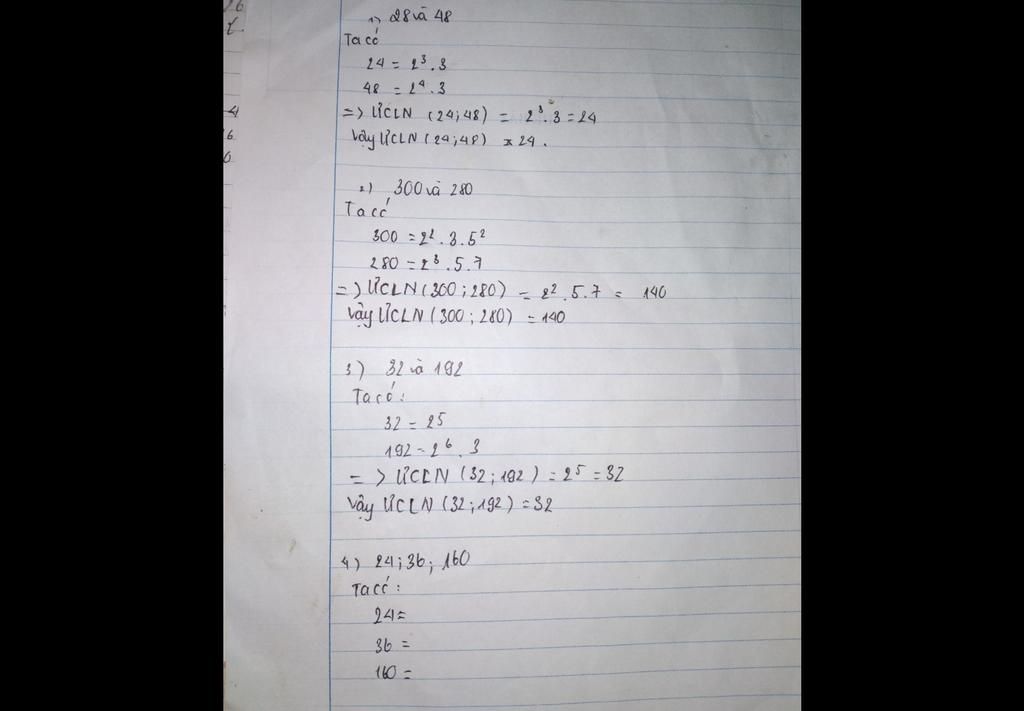 26
t
4
6
0
1) 28 và 48
Ta có
24 = 2³.3
48 = 2⁴.3
=> ƯCLN (24;48) = 2³.3 = 24
Vậy ƯCLN (24;48) = 24.
2) 300 và 280
Ta có
300 = 2².3.5²
280 = 2³.5.7
=> ƯCLN (300;280) = 2².5.7 = 140
Vậy ƯCLN (300;280) = 140
3) 32 và 192
Ta có:
32 = 2⁵
192 = 2⁶.3
=> ƯCLN (32;192) = 2⁵ = 32
Vậy ƯCLN (32;192) = 32
4) 24; 36; 160
Ta có:
24 =
36 =
160 =